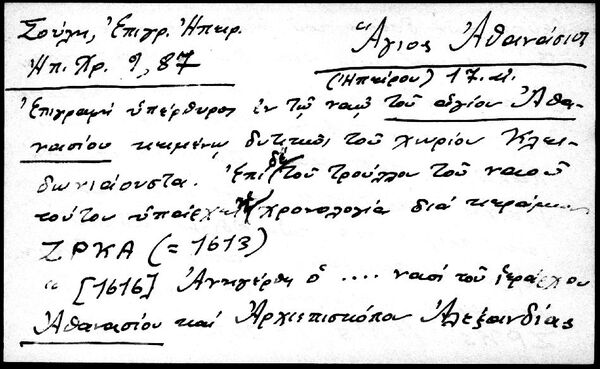 Σούλη, Ἐπιγρ. Ἠπειρ.
Ἠπ. Χρ. 9, 87
Ἅγιος Ἀθανάσιος
(Ἠπείρου) 17. αἰ.
Ἐπιγραφή ὑπέρθυρος ἐν τῷ ναῷ τοῦ ἁγίου Ἀθα-
νασίου κειμένῳ δυτικῶς τοῦ χωρίου Κλει-
δωνιάουστα. Ἐπί δέ τοῦ τρούλλου τοῦ ναοῦ
τούτου ὑπάρχει ἡ χρονολογία διά κεράμων
ΖΡΚΑ (= 1613)
“ [1616] Ἀνηγέρθη ὁ .... ναός τοῦ ἱεράρχου
Ἀθανασίου καί Ἀρχιεπισκόπου Ἀλεξανδίας